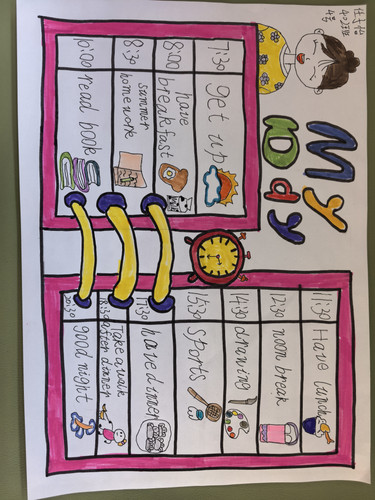 402班
4号
My
Day
7:30 get up
8:00 have
breakfast
8:30 summer
homework
10:00 read book
11:30 Have lunch
12:30 noon break
14:30 drawing
15:30 Sports
17:30 have dinner
18:30 Take a walk
after dinner
20:30 good night